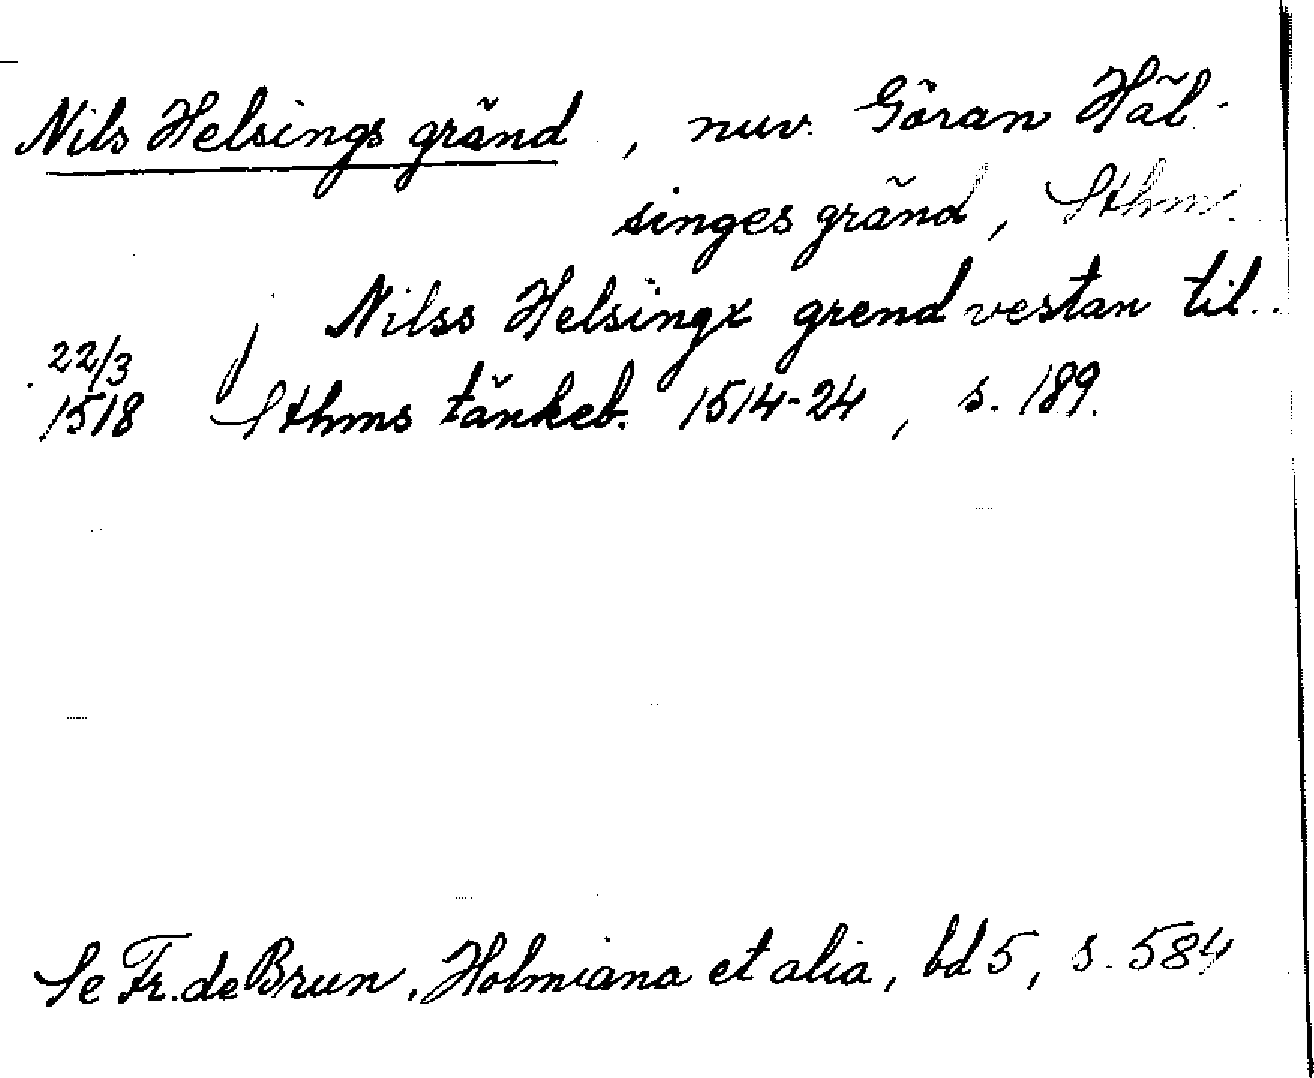 Nils Helsings gränd, nuv. Göran Häl-
singes gränd, Sthm.
j Nilss Helsingx grend vestan til..
22/3
1518 Sthms tänkeb. 1514-24, s. 189.
Se Fr. de Brun, Holmiana et alia, bd 5, s. 584